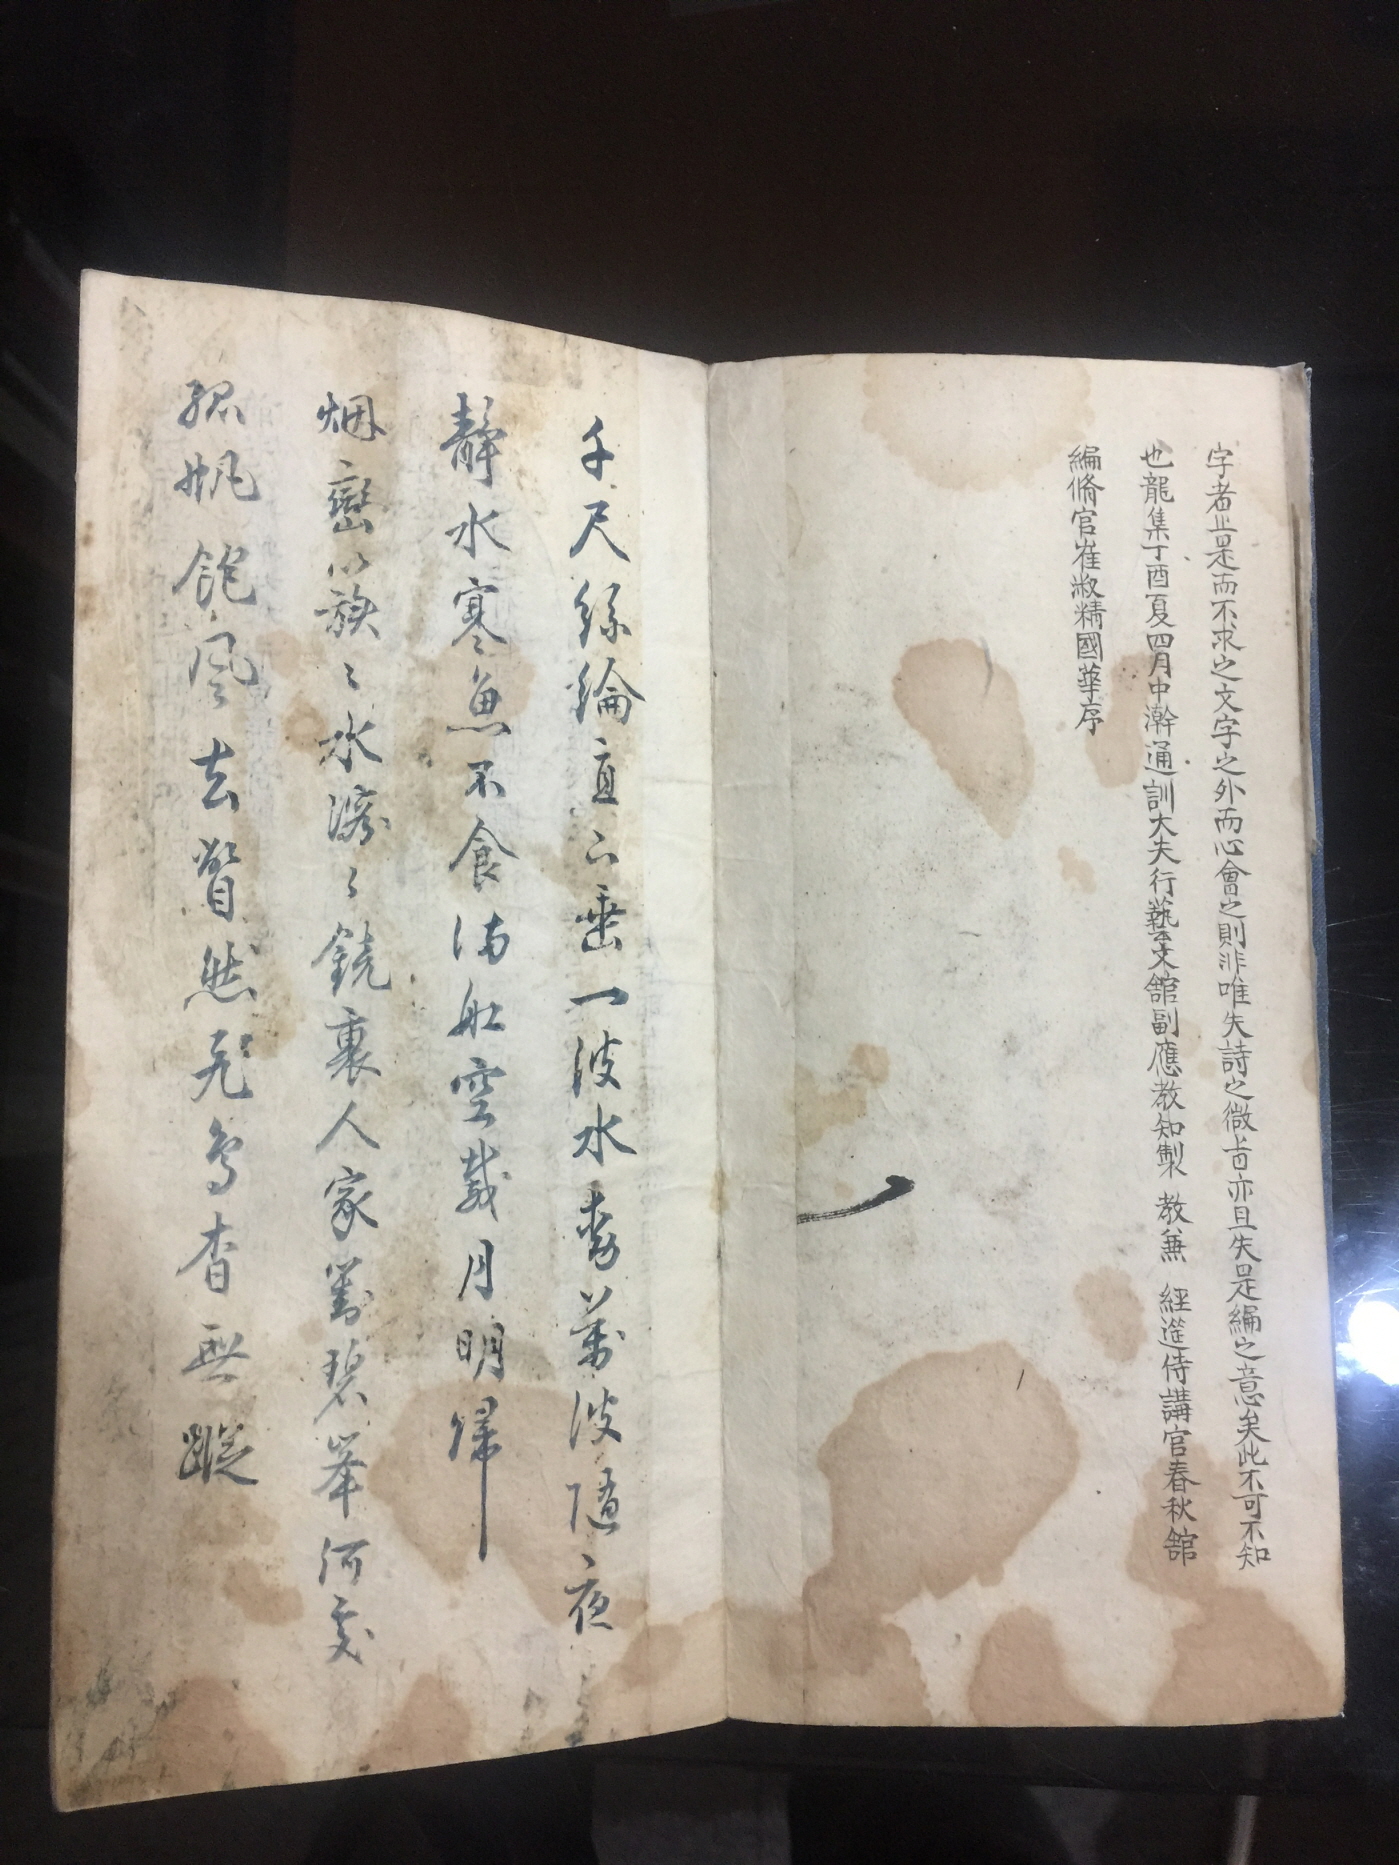 字者止是而不求之文字之外而心會之則非唯失詩之微旨亦且失是編之意矣此不可不知
也龍集丁酉夏四月中澣通訓大夫行藝文舘副應教知製 教兼 經筵侍講官春秋舘
編脩官崔淑精國華序
千尺絲綸直下垂一波水動萬波随夜
靜水寒魚不食滿舡空載月明歸
烟巒簇〻水溶〻鏡裏人家對碧峯何處
孤帆飽風去瞥然飛鳥杳無蹤